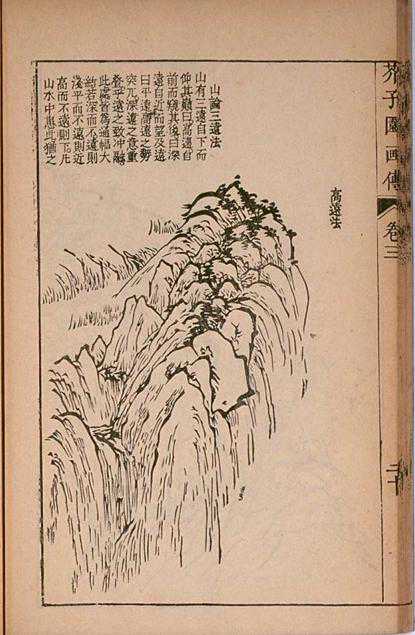 芥子園画傳 卷三
二十
高遠法
山論三遠法
山有三遠自下而
仰其巔曰高遠自
前而窺其後曰深
遠自近而望及遠
曰平遠高遠之勢
突兀深遠之意重
疊平遠之致冲融
此處皆為通幅大
結若深而不遠則
淺平而不遠則近
高而不遠則下凡
山水中患此猶之